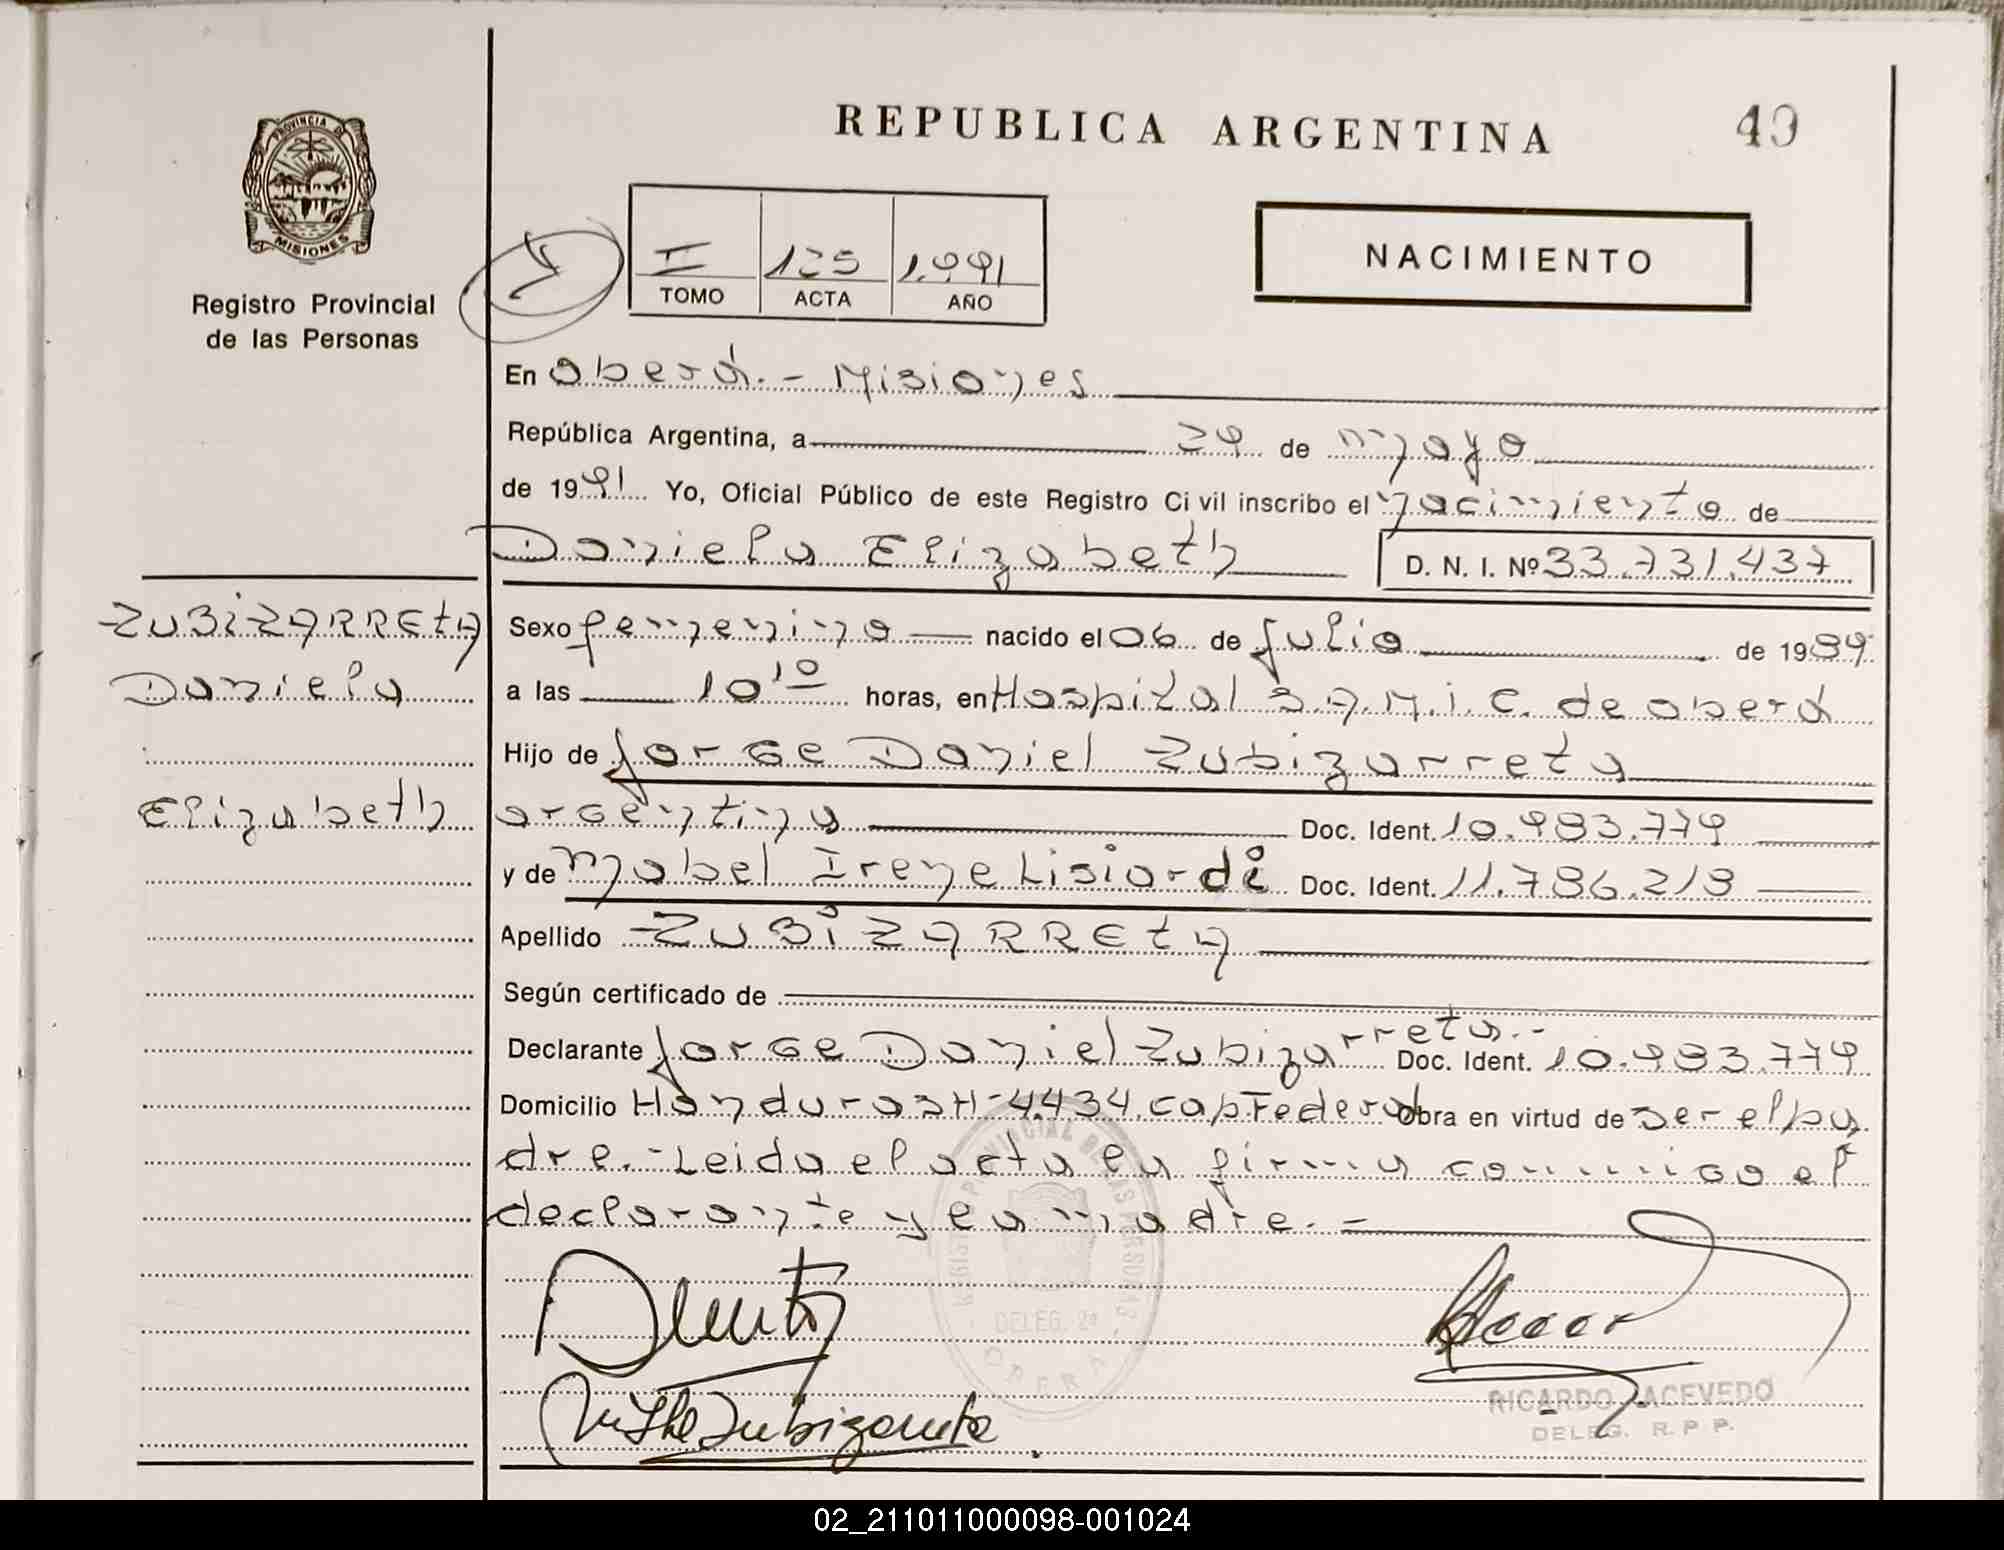 REPUBLICA ARGENTINA
49
PROVINCIA DE
MISIONES
Registro Provincial
de las Personas
II 125 1.991
TOMO ACTA AÑO
NACIMIENTO
En Oberá.- Misiones
República Argentina, a 29 de mayo
de 1991 Yo, Oficial Público de este Registro Civil inscribo el nacimiento de
Daniela Elizabeth D. N. I. Nº 33.731.437
ZUBIZARRETA
Daniela
Elizabeth
Sexo femenino nacido el 06 de Julio de 1989
a las 10 10 horas, en Hospital S.A.M.i.C. de Oberá
Hijo de Jorge Daniel Zubizarreta
argentina Doc. Ident. 10.983.779
y de Mabel Irene Lisiardi Doc. Ident. 11.786.218
Apellido ZUBIZARRETA
Según certificado de
Declarante Jorge Daniel Zubizarreta.- Doc. Ident. 10.983.779
Domicilio Honduras Nº 4.434. Cap. Federal Obra en virtud de ser el pa
dre.- Leida el acta la firma conmigo el
declarante y la madre.-
REGISTRO PROVINCIAL DE LAS PERSONAS
DELEG. 2ª
OBERA
Zubizarreta
RICARDO ACEVEDO
DELEG. R. P. P.
02_211011000098-001024